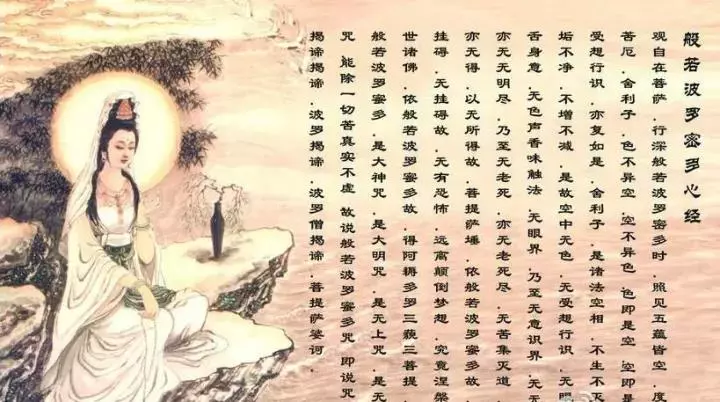 般若波罗密多心经
观自在菩萨．行深般若波罗密多时．照见五蕴皆空．度
苦厄．舍利子．色不异空．空不异色．色即是空．空即是
受想行识．亦复如是．舍利子．是诸法空相．不生不灭
垢不净．不增不减．是故空中无色．无受想行识．无眼
舌身意．无色声香味触法．无眼界．乃至无意识界．无无
亦无无明尽．乃至无老死．亦无老死尽．无苦集灭道．
亦无得．以无所得故．菩提萨埵．依般若波罗密多故．
挂碍．无挂碍故．无有恐怖．远离颠倒梦想．究竟涅槃
世诸佛．依般若波罗密多故．得阿耨多罗三藐三菩提．
般若波罗密多．是大神咒．是大明咒．是无上咒．是无
咒 能除一切苦真实不虚 故说般若波罗密多咒 即说咒
揭谛揭谛．波罗揭谛．波罗僧揭谛．菩提萨婆诃．